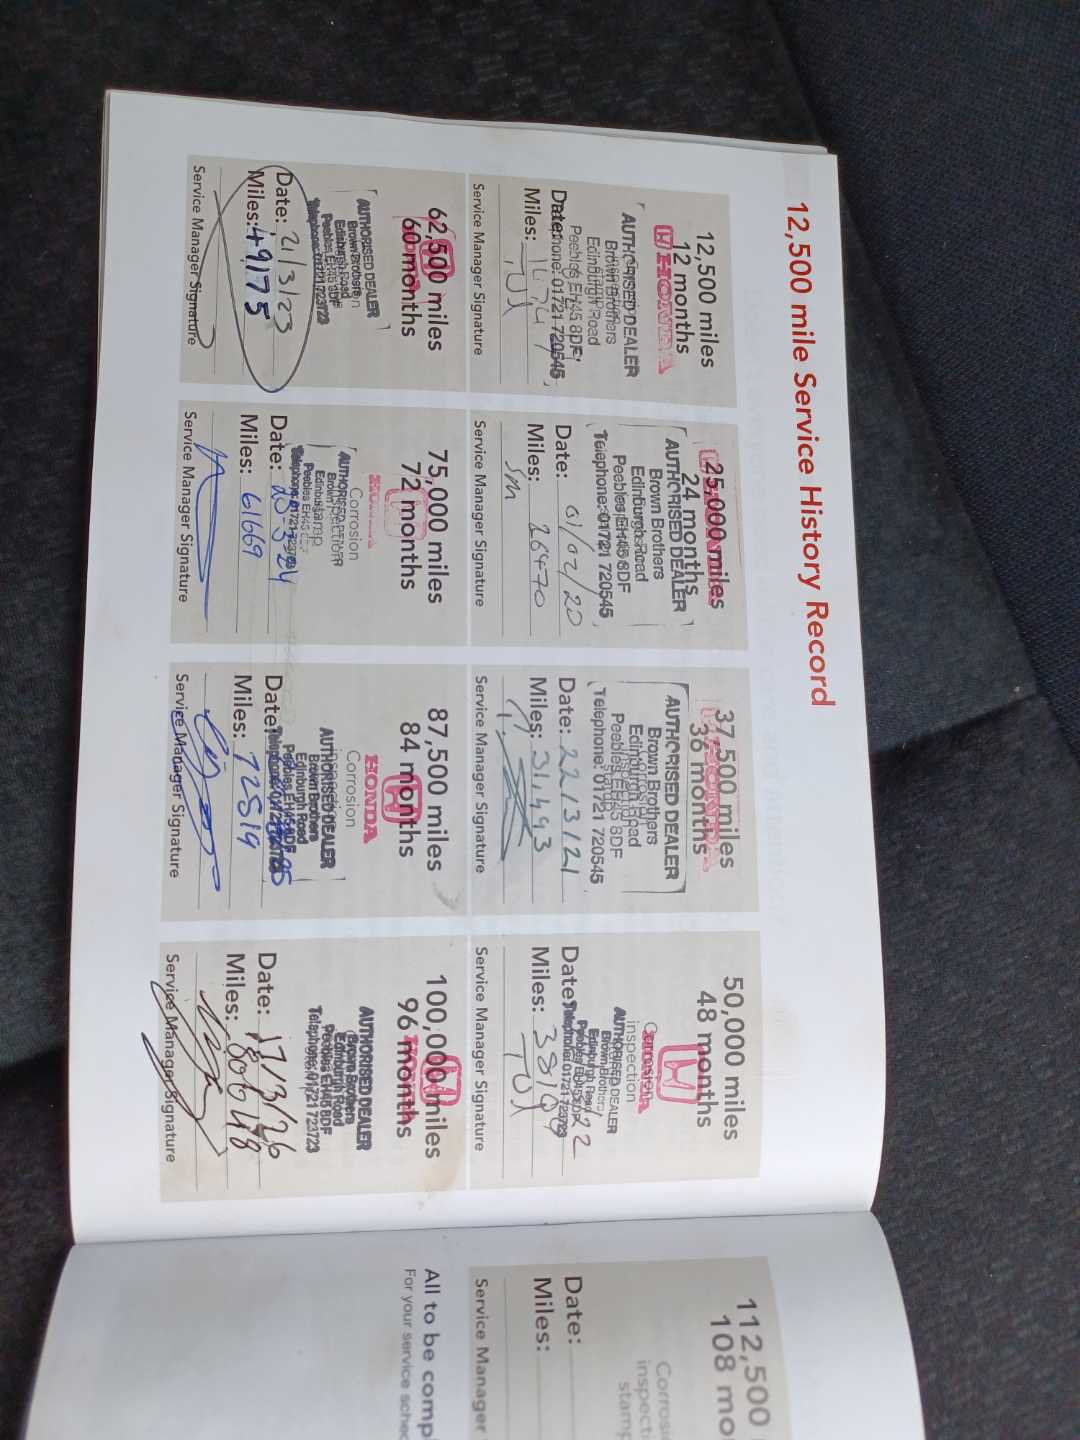 12,500 mile Service History Record
12,500 miles
12 months
HONDA
AUTHORISED DEALER
Brown Brothers
Edinburgh Road
Peebles EH45 8DF
Telephone: 01721 720545
Date:
Miles:
Service Manager Signature
25,000 miles
24 months
AUTHORISED DEALER
Brown Brothers
Edinburgh Road
Peebles EH45 8DF
Telephone: 01721 720545
Date: 01/02/20
Miles: 26470
Service Manager Signature
37,500 miles
36 months
AUTHORISED DEALER
Brown Brothers
Edinburgh Road
Peebles EH45 8DF
Telephone: 01721 720545
Date: 22/3/21
Miles: 31,493
Service Manager Signature
50,000 miles
48 months
Corrosion
inspection
AUTHORISED DEALER
Brown Brothers
Edinburgh Road
Peebles EH45 8DF
Telephone: 01721 723723
Date: 22
Miles: 38199
Service Manager Signature
62,500 miles
60 months
AUTHORISED DEALER
Brown Brothers
Edinburgh Road
Peebles EH45 8DF
Telephone: 01721 723723
Date: 21/3/23
Miles: 49175
Service Manager Signature
75,000 miles
72 months
HONDA
Corrosion
inspection
stamp
AUTHORISED
Brown
Peebles EH45
Telephone: 01721 723723
Date: 20-3-24
Miles: 61669
Service Manager Signature
87,500 miles
84 months
HONDA
Corrosion
inspection
AUTHORISED DEALER
Brown Brothers
Edinburgh Road
Peebles EH45 8DF
Date:
Miles: 72519
Service Manager Signature
100,000 miles
96 months
AUTHORISED DEALER
Brown Brothers
Edinburgh Road
Peebles EH45 8DF
Telephone: 01721 723723
Date: 17/3/26
Miles: 80648
Service Manager Signature
112,500
108 mo
Corrosi
inspecti
stamp
Date:
Miles:
Service Manager
All to be comp
For your service sched